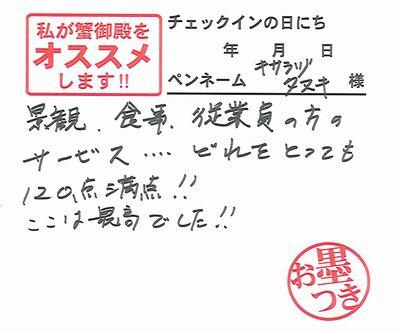 私が蟹御殿を
オススメ
します!!
チェックインの日にち
年 月 日
ペンネーム キサラヅ タヌキ 様
景観、食事、従業員の方の
サービス‥‥ どれをとっても
120点満点!!
ここは最高でした!!
お墨つき